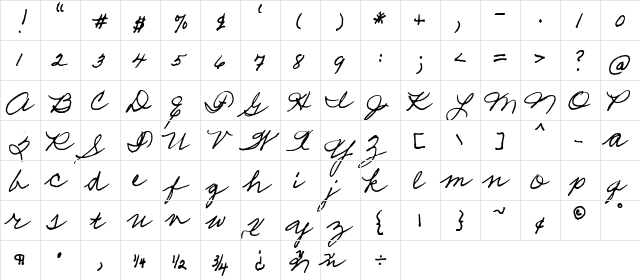 ! " # $ % & ' ( ) * + , - . / 0
1 2 3 4 5 6 7 8 9 : ; < = > ? @
A B C D E F G H I J K L M N O P
Q R S T U V W X Y Z [ \ ] ^ _ a
b c d e f g h i j k l m n o p q
r s t u v w x y z { | } ~ ¢ © °
¶ • , ¼ ½ ¾ ¿ ÷